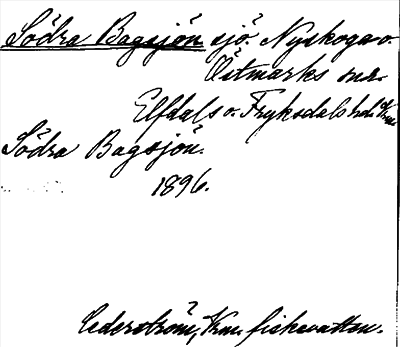 Södra Bagsjön sjö. Nyskoga o.
Östmarks snr.
Elfdals o. Fryksdals hd.
Södra Bagsjön.
1896.
Cederström, Vrm. fiskevatten.